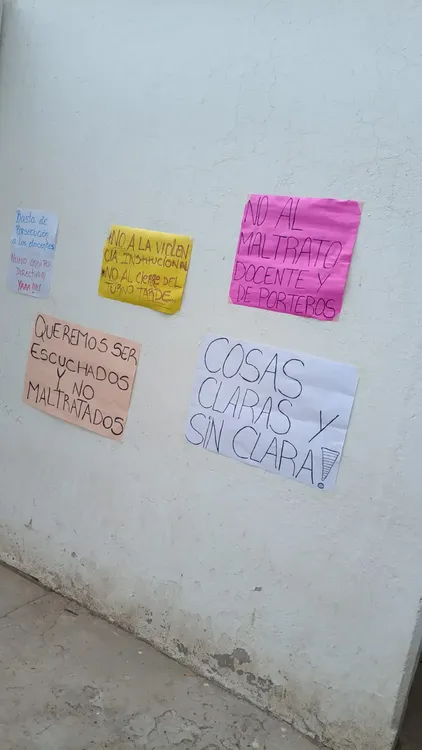 Basta de
Persecución
a los docentes
YAAA!!!
NO A LA VIOLEN
CIA INSTITUCIONAL
NO AL CIERRE DEL
TURNO TARDE
NO AL
MALTRATO
DOCENTE Y
DE PORTEROS
QUEREMOS SER
ESCUCHADOS
Y NO
MALTRATADOS
COSAS
CLARAS Y
SIN CLARA!